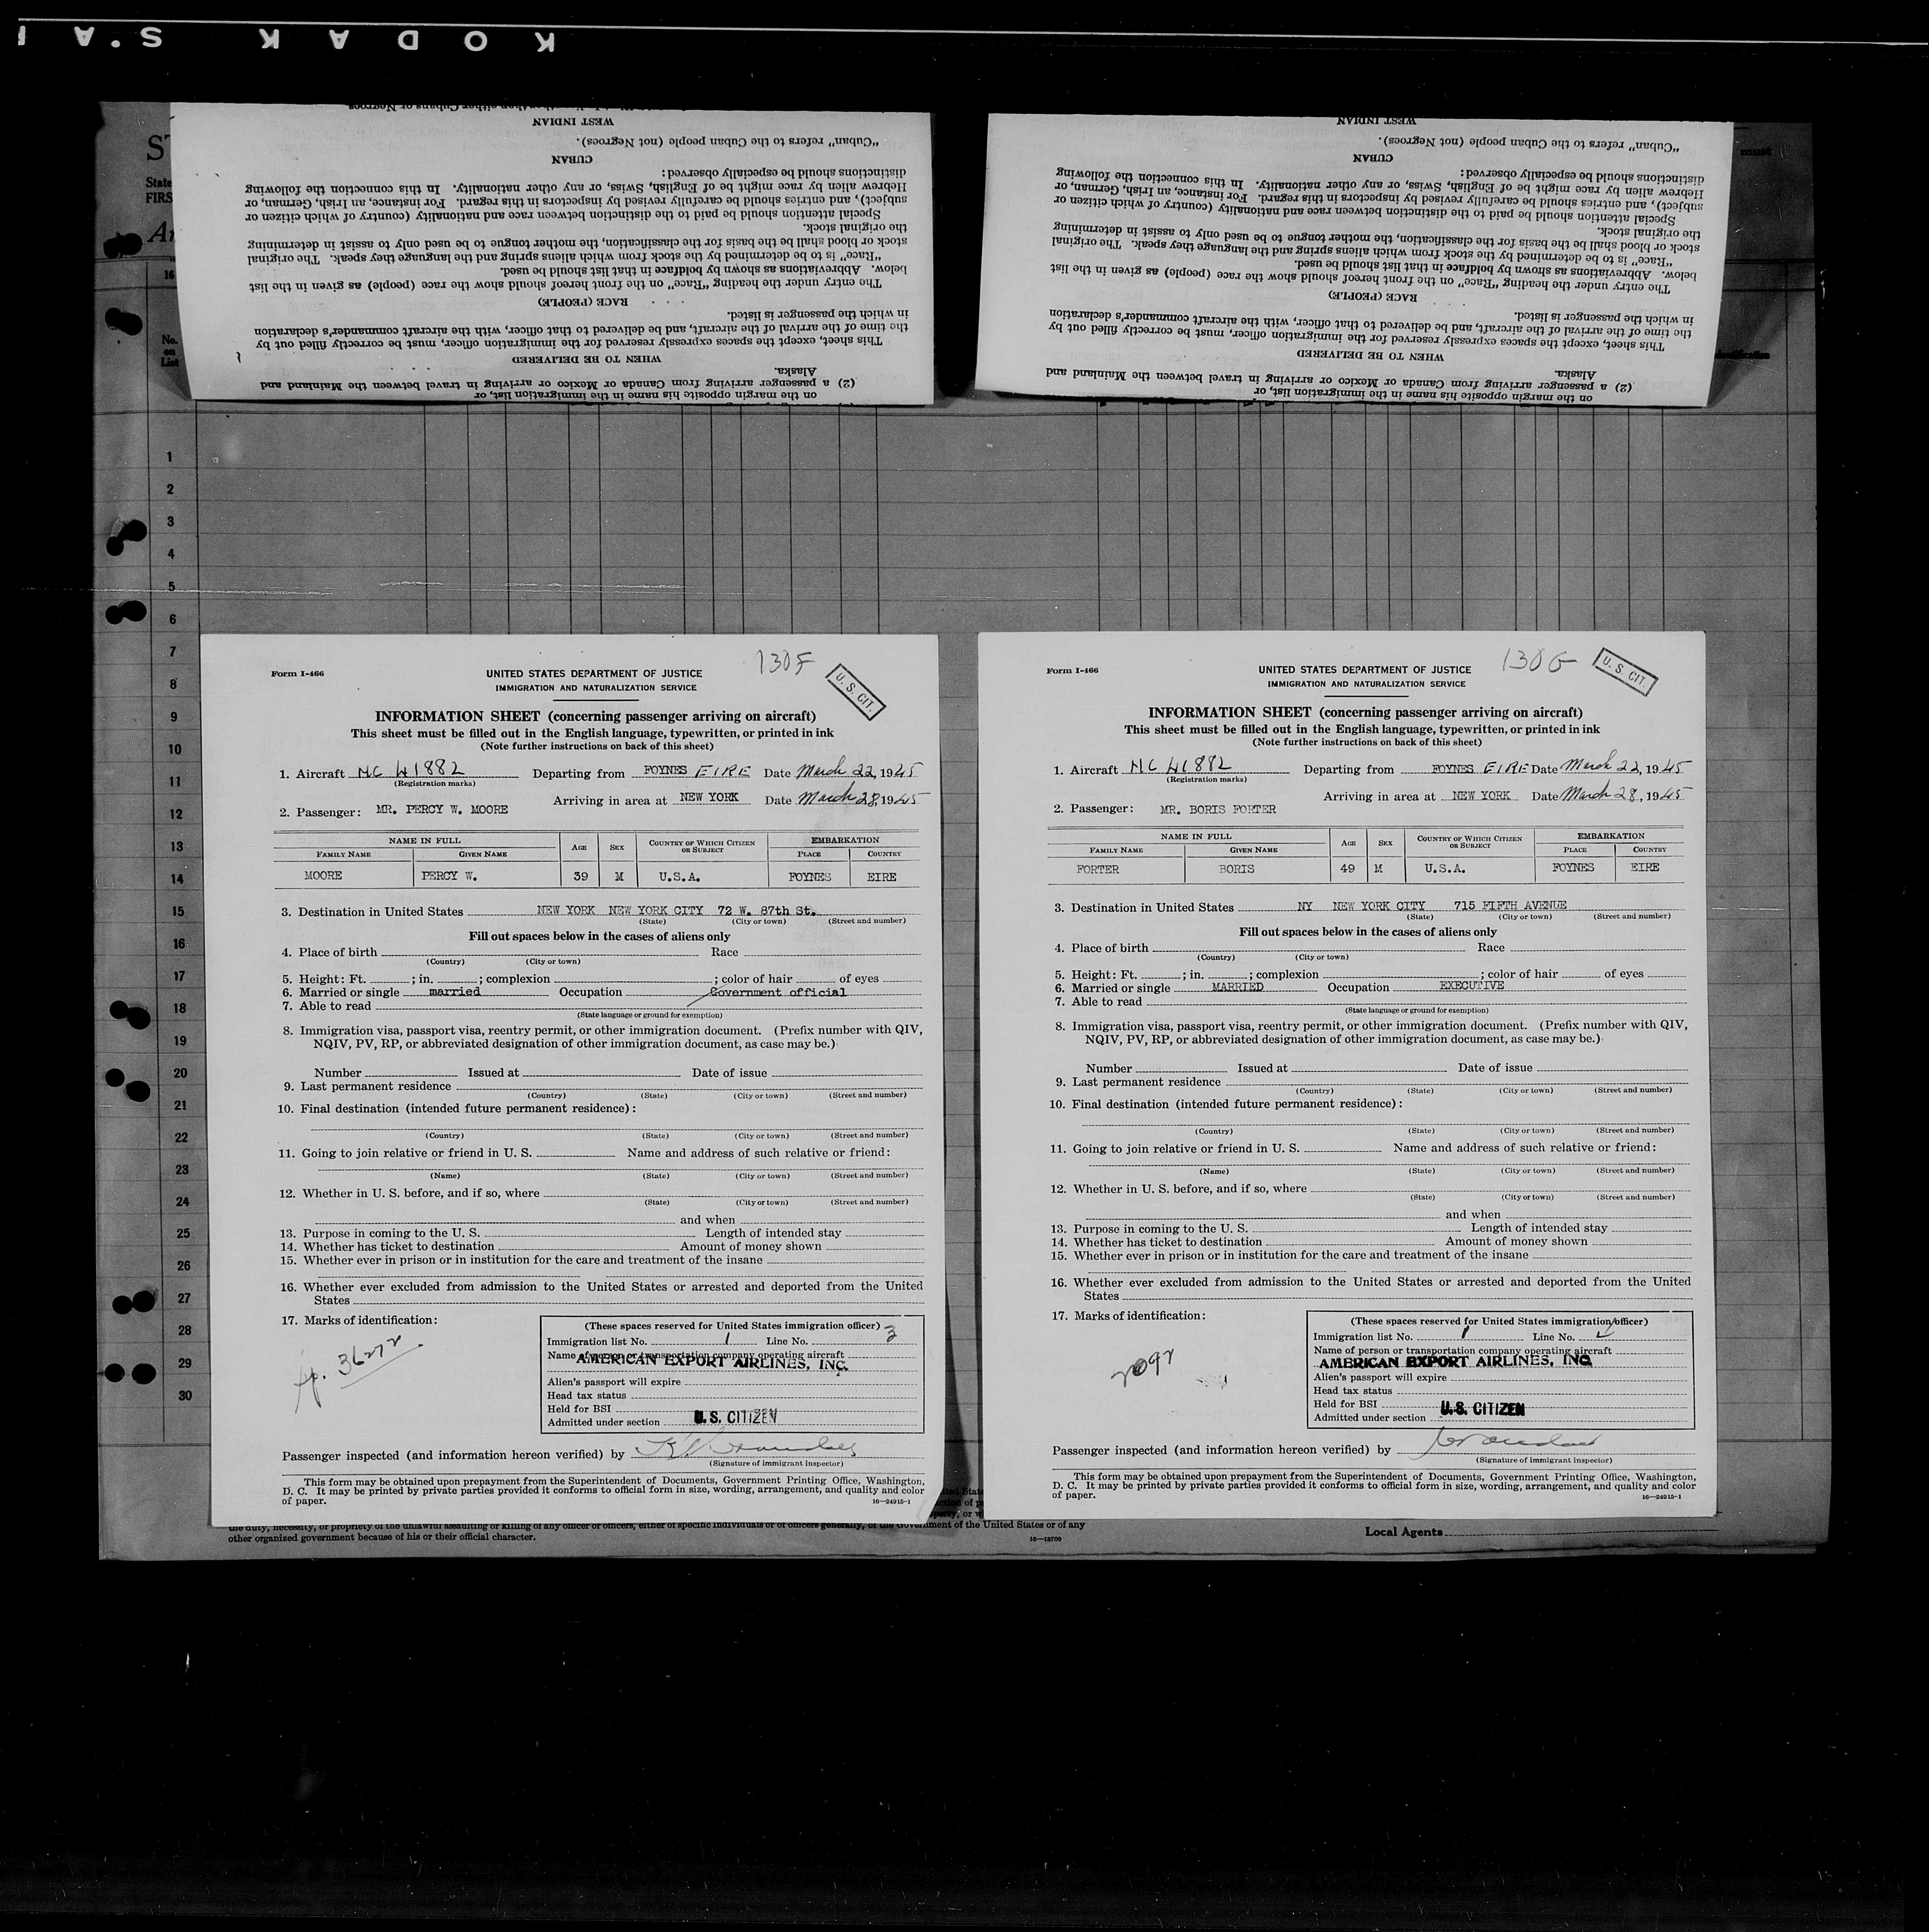 KODAK S'A I
on the margin opposite his name in the immigration list, or
(2) a passenger arriving from Canada or Mexico or arriving in travel between the Mainland and
Alaska.
WHEN TO BE DELIVERED
This sheet, except the spaces expressly reserved for the immigration officer, must be correctly filled out by
the time of the arrival of the aircraft, and be delivered to that officer, with the aircraft commander's declaration
in which the passenger is listed.
RACE (PEOPLE)
The entry under the heading "Race" on the front hereof should show the race (people) as given in the list
below. Abbreviations as shown by boldface in that list should be used.
"Race" is to be determined by the stock from which aliens spring and the language they speak. The original
stock or blood shall be the basis for the classification, the mother tongue to be used only to assist in determining
the original stock.
Special attention should be paid to the distinction between race and nationality (country of which citizen or
subject), and entries should be carefully revised by inspectors in this regard. For instance, an Irish, German, or
Hebrew alien by race might be of English, Swiss, or any other nationality. In this connection the following
distinctions should be especially observed:
CUBAN
"Cuban" refers to the Cuban people (not Negroes).
WEST INDIAN
on the margin opposite his name in the immigration list, or
(2) a passenger arriving from Canada or Mexico or arriving in travel between the Mainland and
Alaska.
WHEN TO BE DELIVERED
This sheet, except the spaces expressly reserved for the immigration officer, must be correctly filled out by
the time of the arrival of the aircraft, and be delivered to that officer, with the aircraft commander's declaration
in which the passenger is listed.
RACE (PEOPLE)
The entry under the heading "Race" on the front hereof should show the race (people) as given in the list
below. Abbreviations as shown by boldface in that list should be used.
"Race" is to be determined by the stock from which aliens spring and the language they speak. The original
stock or blood shall be the basis for the classification, the mother tongue to be used only to assist in determining
the original stock.
Special attention should be paid to the distinction between race and nationality (country of which citizen or
subject), and entries should be carefully revised by inspectors in this regard. For instance, an Irish, German, or
Hebrew alien by race might be of English, Swiss, or any other nationality. In this connection the following
distinctions should be especially observed:
CUBAN
"Cuban" refers to the Cuban people (not Negroes).
WEST INDIAN
State
FIRS
16
No.
on
List
1
2
3
4
5
6
7
8
9
10
11
12
13
14
15
16
17
18
19
20
21
22
23
24
25
26
27
28
29
30
130F
Form I-466
UNITED STATES DEPARTMENT OF JUSTICE
IMMIGRATION AND NATURALIZATION SERVICE
U. S. CIT.
INFORMATION SHEET (concerning passenger arriving on aircraft)
This sheet must be filled out in the English language, typewritten, or printed in ink
(Note further instructions on back of this sheet)
1. Aircraft NC 41882 Departing from FOYNES EIRE Date March 22, 1945
(Registration marks)
Arriving in area at NEW YORK Date March 28, 1945
2. Passenger: MR. PERCY W. MOORE
NAME IN FULL AGE SEX COUNTRY OF WHICH CITIZEN OR SUBJECT EMBARKATION
FAMILY NAME GIVEN NAME PLACE COUNTRY
MOORE PERCY W. 39 M U.S.A. FOYNES EIRE
3. Destination in United States NEW YORK NEW YORK CITY 72 W. 87th St.
(State) (City or town) (Street and number)
Fill out spaces below in the cases of aliens only
4. Place of birth Race
(Country) (City or town)
5. Height: Ft. ; in. ; complexion ; color of hair of eyes
6. Married or single married Occupation Government official
7. Able to read
(State language or ground for exemption)
8. Immigration visa, passport visa, reentry permit, or other immigration document. (Prefix number with QIV,
NQIV, PV, RP, or abbreviated designation of other immigration document, as case may be.)
Number Issued at Date of issue
9. Last permanent residence
(Country) (State) (City or town) (Street and number)
10. Final destination (intended future permanent residence):
(Country) (State) (City or town) (Street and number)
11. Going to join relative or friend in U. S. Name and address of such relative or friend:
(Name) (State) (City or town) (Street and number)
12. Whether in U. S. before, and if so, where
(State) (City or town) (Street and number)
and when
13. Purpose in coming to the U. S. Length of intended stay
14. Whether has ticket to destination Amount of money shown
15. Whether ever in prison or in institution for the care and treatment of the insane
16. Whether ever excluded from admission to the United States or arrested and deported from the United
States
17. Marks of identification:
(These spaces reserved for United States immigration officer)
Immigration list No. 1 Line No. 3
Name of person or transportation company operating aircraft
AMERICAN EXPORT AIRLINES, INC.
Alien's passport will expire
Head tax status
Held for BSI
Admitted under section U.S. CITIZEN
Passenger inspected (and information hereon verified) by
(Signature of immigrant inspector)
This form may be obtained upon prepayment from the Superintendent of Documents, Government Printing Office, Washington,
D. C. It may be printed by private parties provided it conforms to official form in size, wording, arrangement, and quality and color
of paper.
16—24915-1
130G
Form I-466
UNITED STATES DEPARTMENT OF JUSTICE
IMMIGRATION AND NATURALIZATION SERVICE
U. S. CIT.
INFORMATION SHEET (concerning passenger arriving on aircraft)
This sheet must be filled out in the English language, typewritten, or printed in ink
(Note further instructions on back of this sheet)
1. Aircraft NC 41882 Departing from FOYNES EIRE Date March 22, 1945
(Registration marks)
Arriving in area at NEW YORK Date March 28, 1945
2. Passenger: MR. BORIS FORTER
NAME IN FULL AGE SEX COUNTRY OF WHICH CITIZEN OR SUBJECT EMBARKATION
FAMILY NAME GIVEN NAME PLACE COUNTRY
FORTER BORIS 49 M U.S.A. FOYNES EIRE
3. Destination in United States NY NEW YORK CITY 715 FIFTH AVENUE
(State) (City or town) (Street and number)
Fill out spaces below in the cases of aliens only
4. Place of birth Race
(Country) (City or town)
5. Height: Ft. ; in. ; complexion ; color of hair of eyes
6. Married or single MARRIED Occupation EXECUTIVE
7. Able to read
(State language or ground for exemption)
8. Immigration visa, passport visa, reentry permit, or other immigration document. (Prefix number with QIV,
NQIV, PV, RP, or abbreviated designation of other immigration document, as case may be.)
Number Issued at Date of issue
9. Last permanent residence
(Country) (State) (City or town) (Street and number)
10. Final destination (intended future permanent residence):
(Country) (State) (City or town) (Street and number)
11. Going to join relative or friend in U. S. Name and address of such relative or friend:
(Name) (State) (City or town) (Street and number)
12. Whether in U. S. before, and if so, where
(State) (City or town) (Street and number)
and when
13. Purpose in coming to the U. S. Length of intended stay
14. Whether has ticket to destination Amount of money shown
15. Whether ever in prison or in institution for the care and treatment of the insane
16. Whether ever excluded from admission to the United States or arrested and deported from the United
States
17. Marks of identification:
(These spaces reserved for United States immigration officer)
Immigration list No. 1 Line No. 4
Name of person or transportation company operating aircraft
AMERICAN EXPORT AIRLINES, INC.
Alien's passport will expire
Head tax status
Held for BSI
Admitted under section U.S. CITIZEN
Passenger inspected (and information hereon verified) by
(Signature of immigrant inspector)
This form may be obtained upon prepayment from the Superintendent of Documents, Government Printing Office, Washington,
D. C. It may be printed by private parties provided it conforms to official form in size, wording, arrangement, and quality and color
of paper.
16—24915-1
the duty, necessity, or propriety of the unlawful assaulting or killing of any officer or officers, either of specific individuals or of officers generally, of the Government of the United States or of any
other organized government because of his or their official character.
16—18709
Local Agents